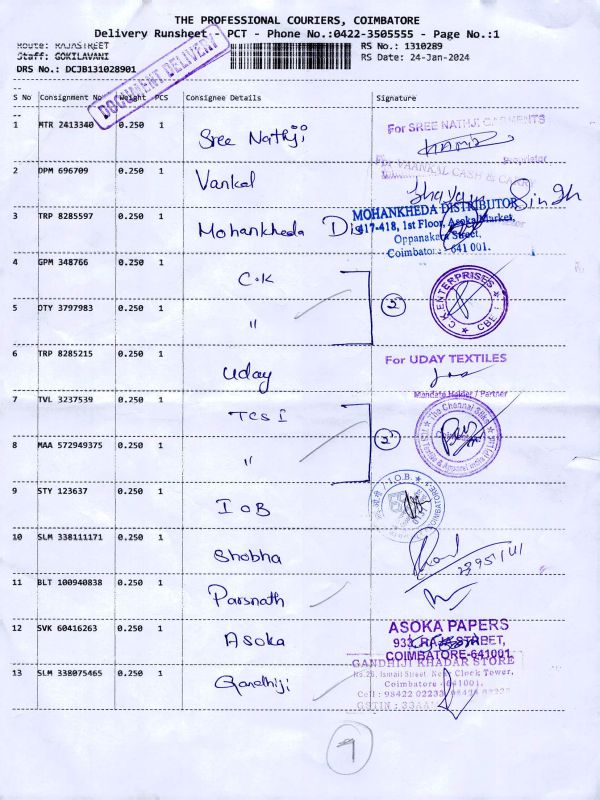 THE PROFESSIONAL COURIERS, COIMBATORE
Delivery Runsheet - PCT - Phone No.:0422-3505555 - Page No.:1
Route: RAJASTREET
RS No.: 1310289
Staff: GOKILAVANI
RS Date: 24-Jan-2024
DRS No.: DCJB131028901
DOCUMENT DELIVERY
S No Consignment No Weight PCS Consignee Details Signature
1 MTR 2413340 0.250 1 Sree Nathji
For SREE NATHJI GARMENTS
Proprietor
2 DPM 696709 0.250 1 Vankal
VAANKAL CASH & CARRY
Singh
3 TRP 8285597 0.250 1 Mohankheda Dis
MOHANKHEDA DISTRIBUTOR
417-418, 1st Floor, Asoka Market,
Oppanakara Street,
Coimbatore - 641 001.
4 GPM 348766 0.250 1 C.K
2
C.K ENTERPRISES
CBE
5 DTY 3797983 0.250 1 "
6 TRP 8285215 0.250 1 Uday
For UDAY TEXTILES
Mandate Holder / Partner
7 TVL 3237539 0.250 1 TCS I
2
The Chennai Silks
8 MAA 572949375 0.250 1 "
9 STY 123637 0.250 1 IOB
I.O.B.
10 SLM 338111171 0.250 1 Shobha
11 BLT 100940838 0.250 1 Parsnath
12 SVK 60416263 0.250 1 Asoka
ASOKA PAPERS
933, RAJA STREET,
COIMBATORE-641001
13 SLM 338075465 0.250 1 Gandhiji
GANDHIJI KHADAR STORE
Ismail Street, Near Clock Tower,
Coimbatore - 641001.
Cell : 98422 02233
GSTIN : 33AA